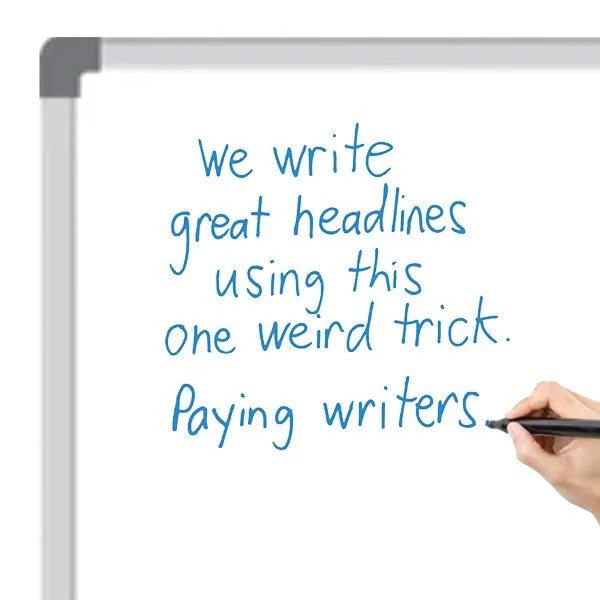 We write
great headlines
using this
one weird trick.
Paying writers